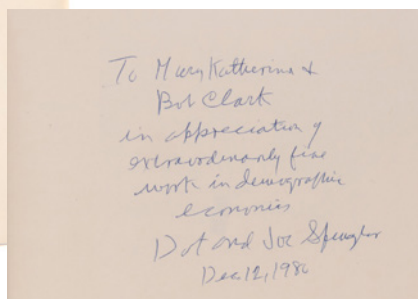 To Mary Katherine +
Bob Clark
in appreciation of
extraordinarily fine
work in demographic
economics
Dot and Joe Spengler
Dec 12, 1980